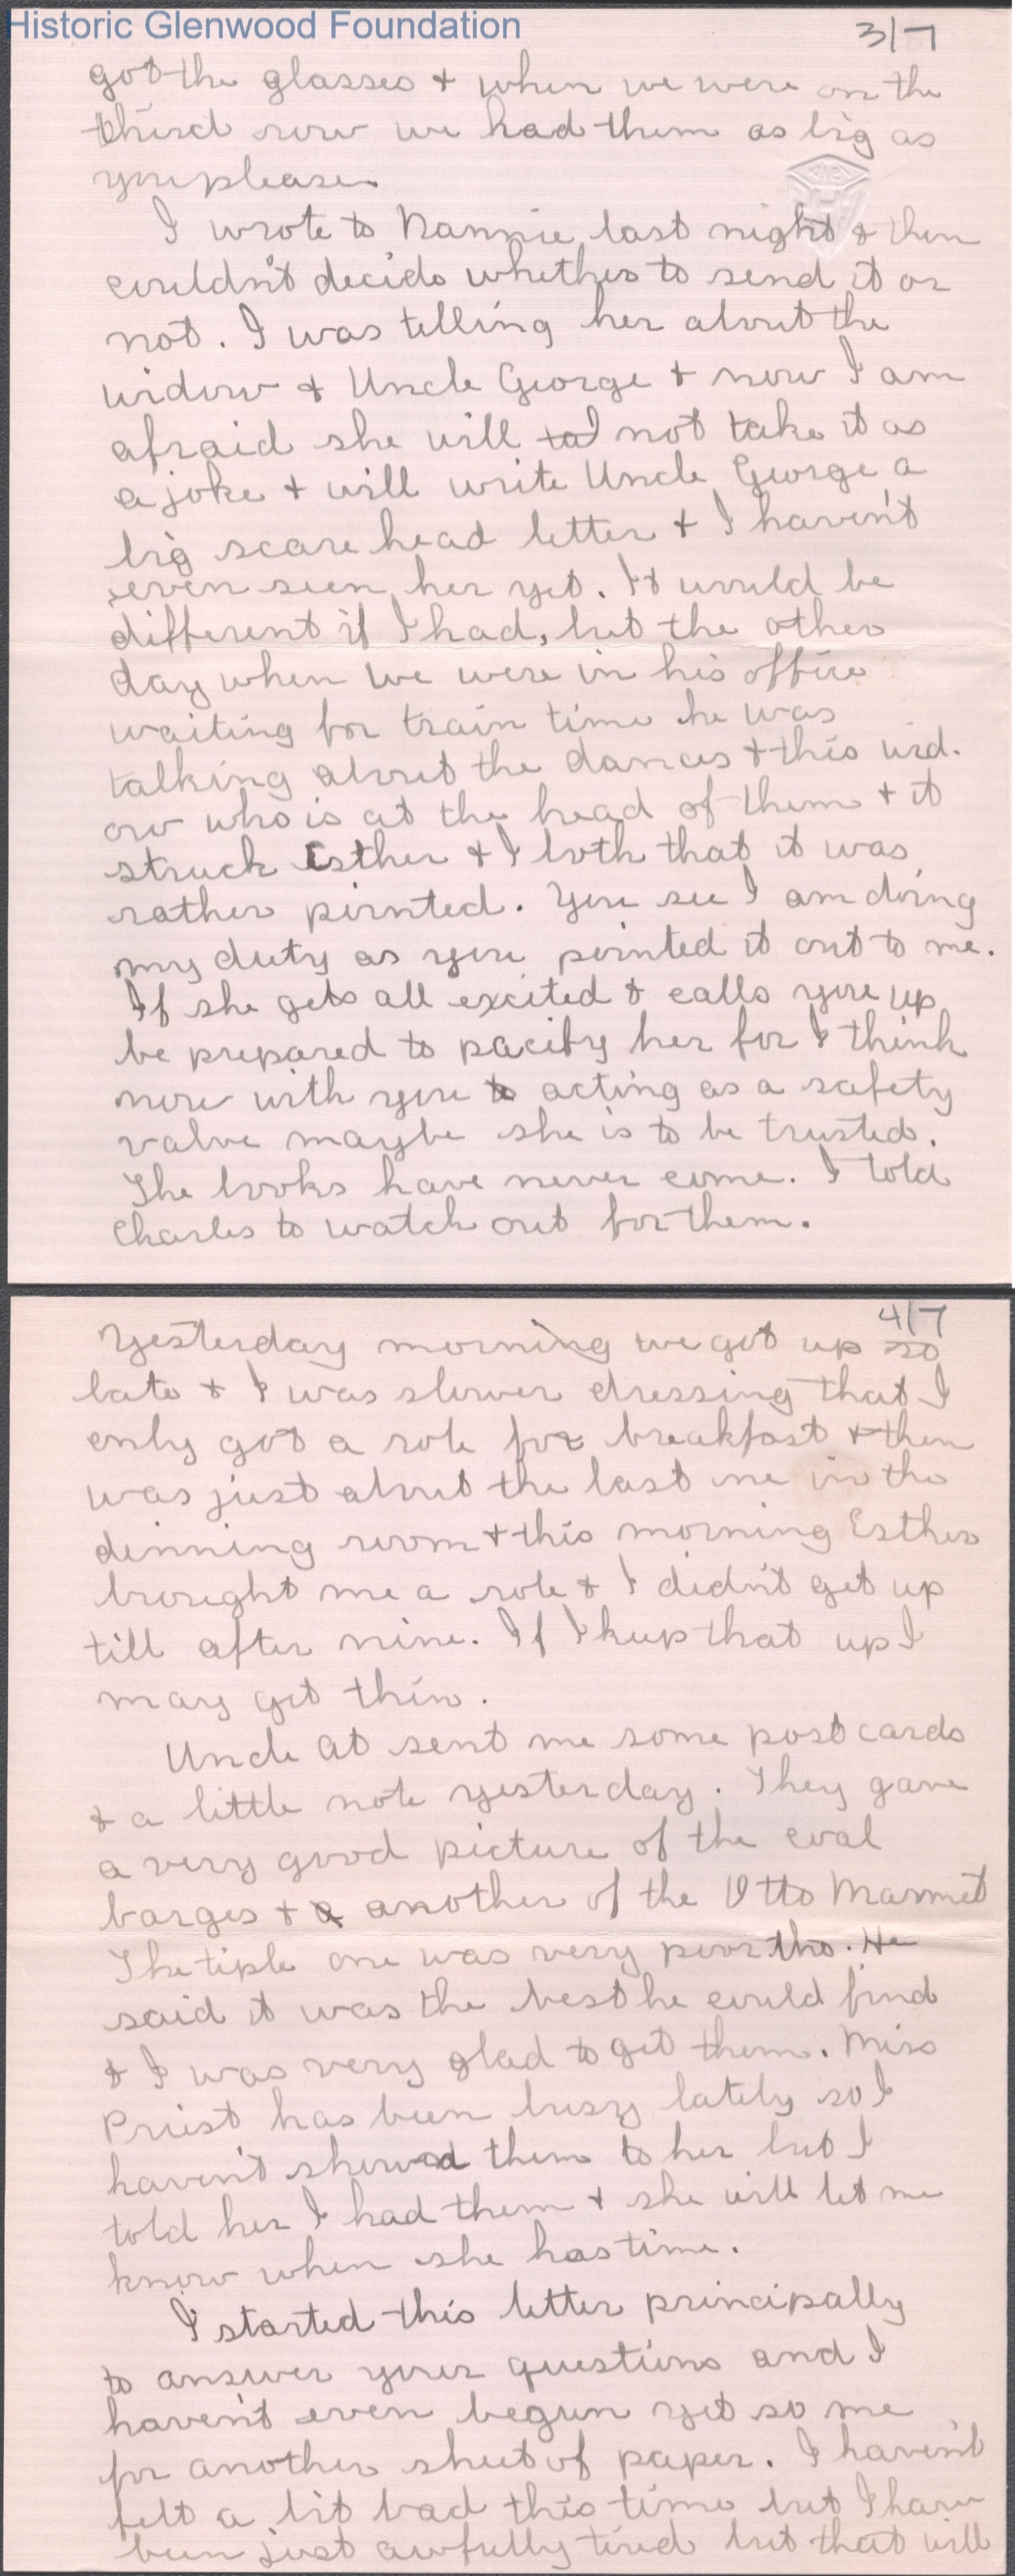 Historic Glenwood Foundation
3/7
got the glasses & when we were on the
third row we had them as big as
you please.
I wrote to Nannie last night & then
couldn't decide whether to send it or
not. I was telling her about the
widow & Uncle George & now I am
afraid she will not take it as
a joke & will write Uncle George a
big scare head letter & I haven't
even seen her yet. It would be
different if I had, but the other
day when we were in his office
waiting for train time he was
talking about the dances & this wid-
ow who is at the head of them & it
struck Esther & I both that it was
rather pointed. You see I am doing
my duty as you pointed it out to me.
If she gets all excited & calls you up
be prepared to pacify her for I think
now with you acting as a safety
valve maybe she is to be trusted.
The books have never come. I told
Charles to watch out for them.
4/7
Yesterday morning we got up so
late & I was slower dressing that I
only got a role for breakfast & then
was just about the last one in the
dinning room & this morning Esther
brought me a role & I didn't get up
till after nine. If I keep that up I
may get thin.
Uncle At sent me some post cards
& a little note yesterday. They gave
a very good picture of the coal
barges & another of the Otto Marmet
The tiple one was very poor tho. He
said it was the best he could find
& I was very glad to get them. Miss
Priest has been busy lately so I
haven't showed them to her but I
told her I had them & she will let me
know when she has time.
I started this letter principally
to answer your questions and I
haven't even begun yet so me
for another sheet of paper. I haven't
felt a bit bad this time but I have
been just awfully tired but that will